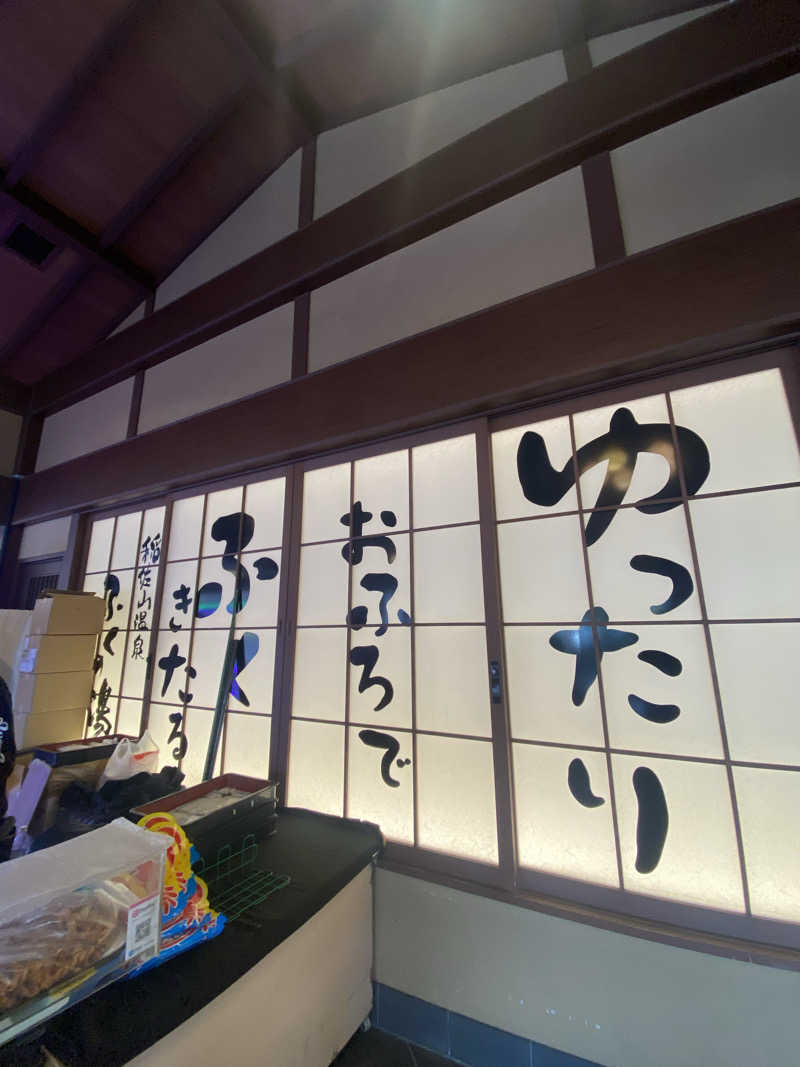 ゆったり
おふろで
ふく
きたる
稲佐山温泉
ふくの湯